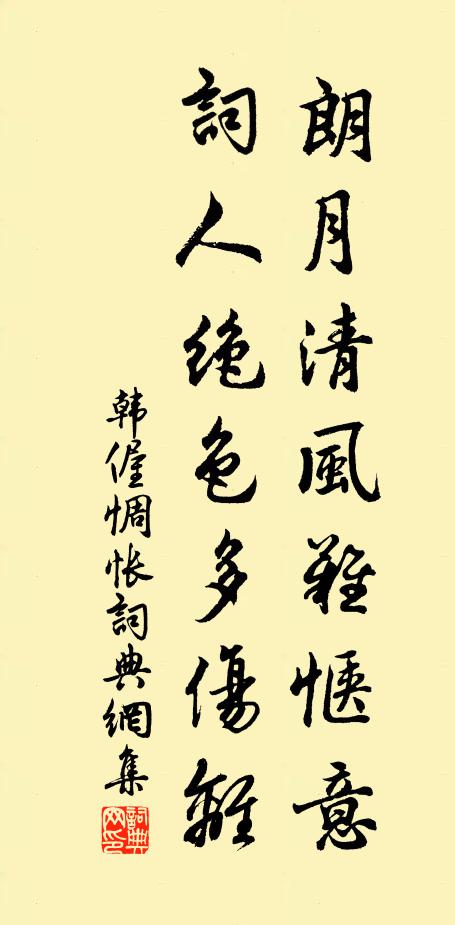 朗月清風難愜意
詞人絶色多傷離
韩偓惆怅詞典網集
詞典网印